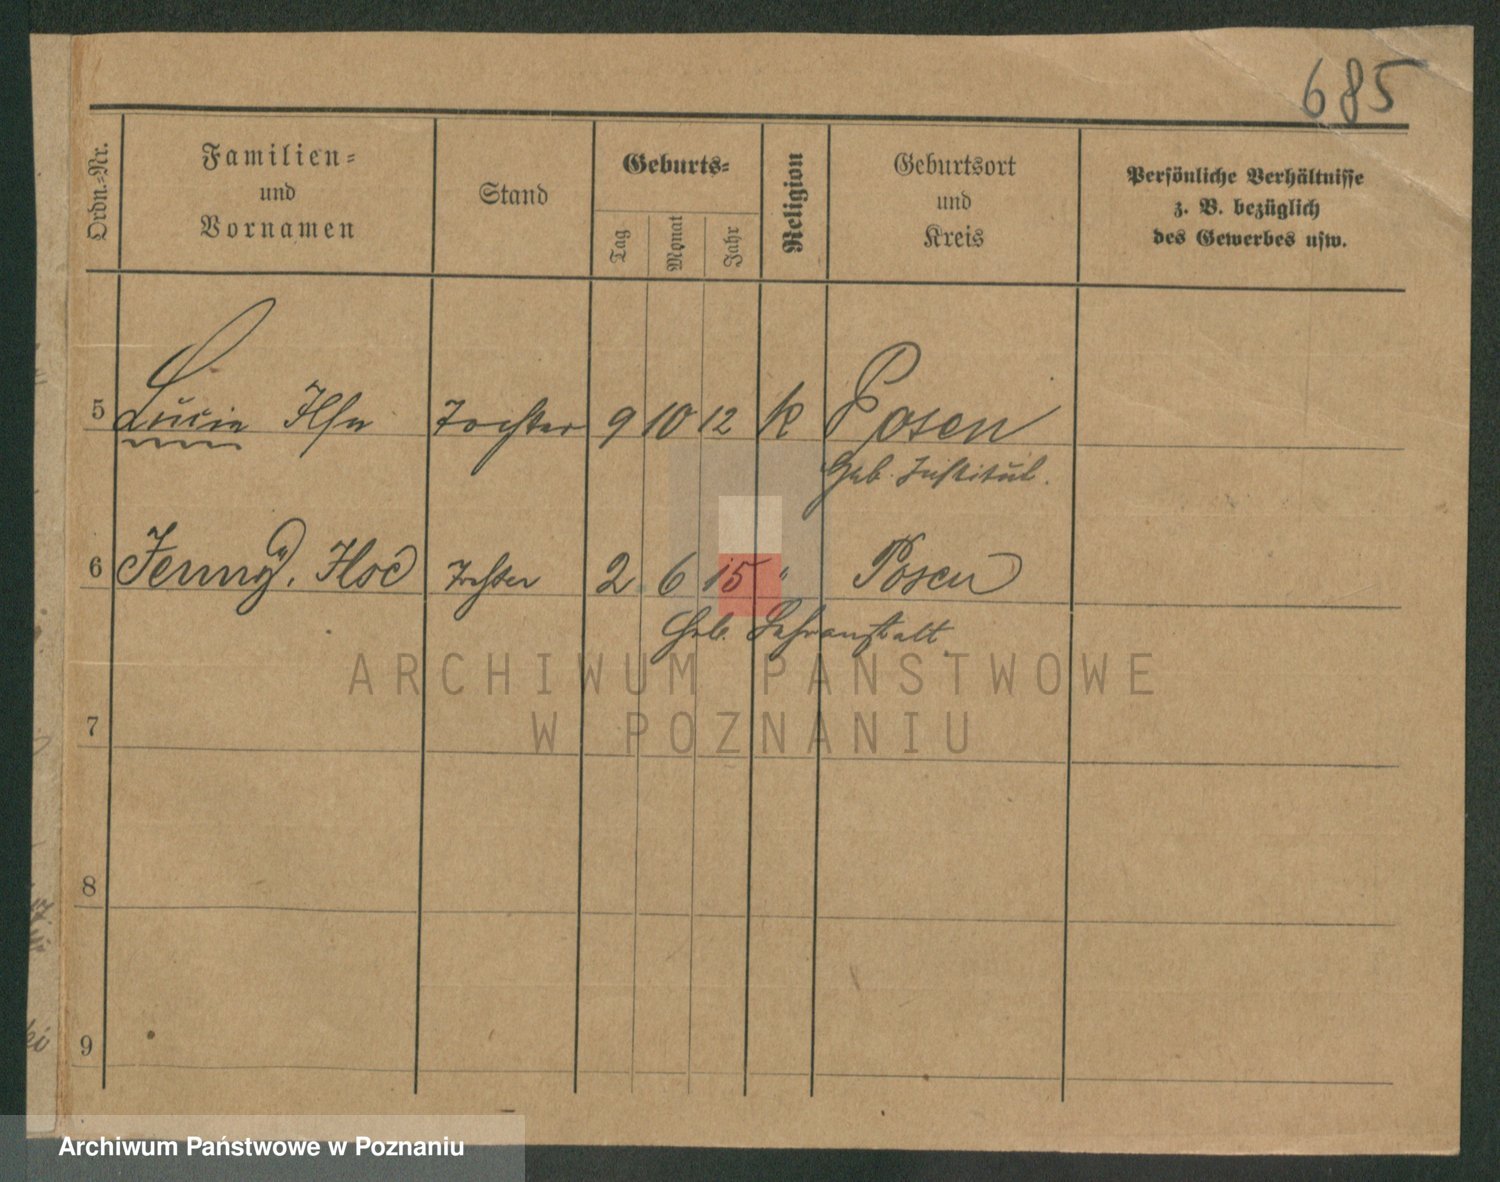 685
Ordn.-Nr.
Familien-
und
Vornamen
Stand
Geburts-
Tag
Monat
Jahr
Religion
Geburtsort
und
Kreis
Persönliche Verhältnisse
z. B. bezüglich
des Gewerbes usw.
5 Lucie Ilse Tochter 9 10 12 k Posen
Geb. Institut.
6 Jenny, Tochter 2 6 15 " Posen
Geb. Lehranstalt
7
8
9
ARCHIWUM PAŃSTWOWE
W POZNANIU
Archiwum Państwowe w Poznaniu